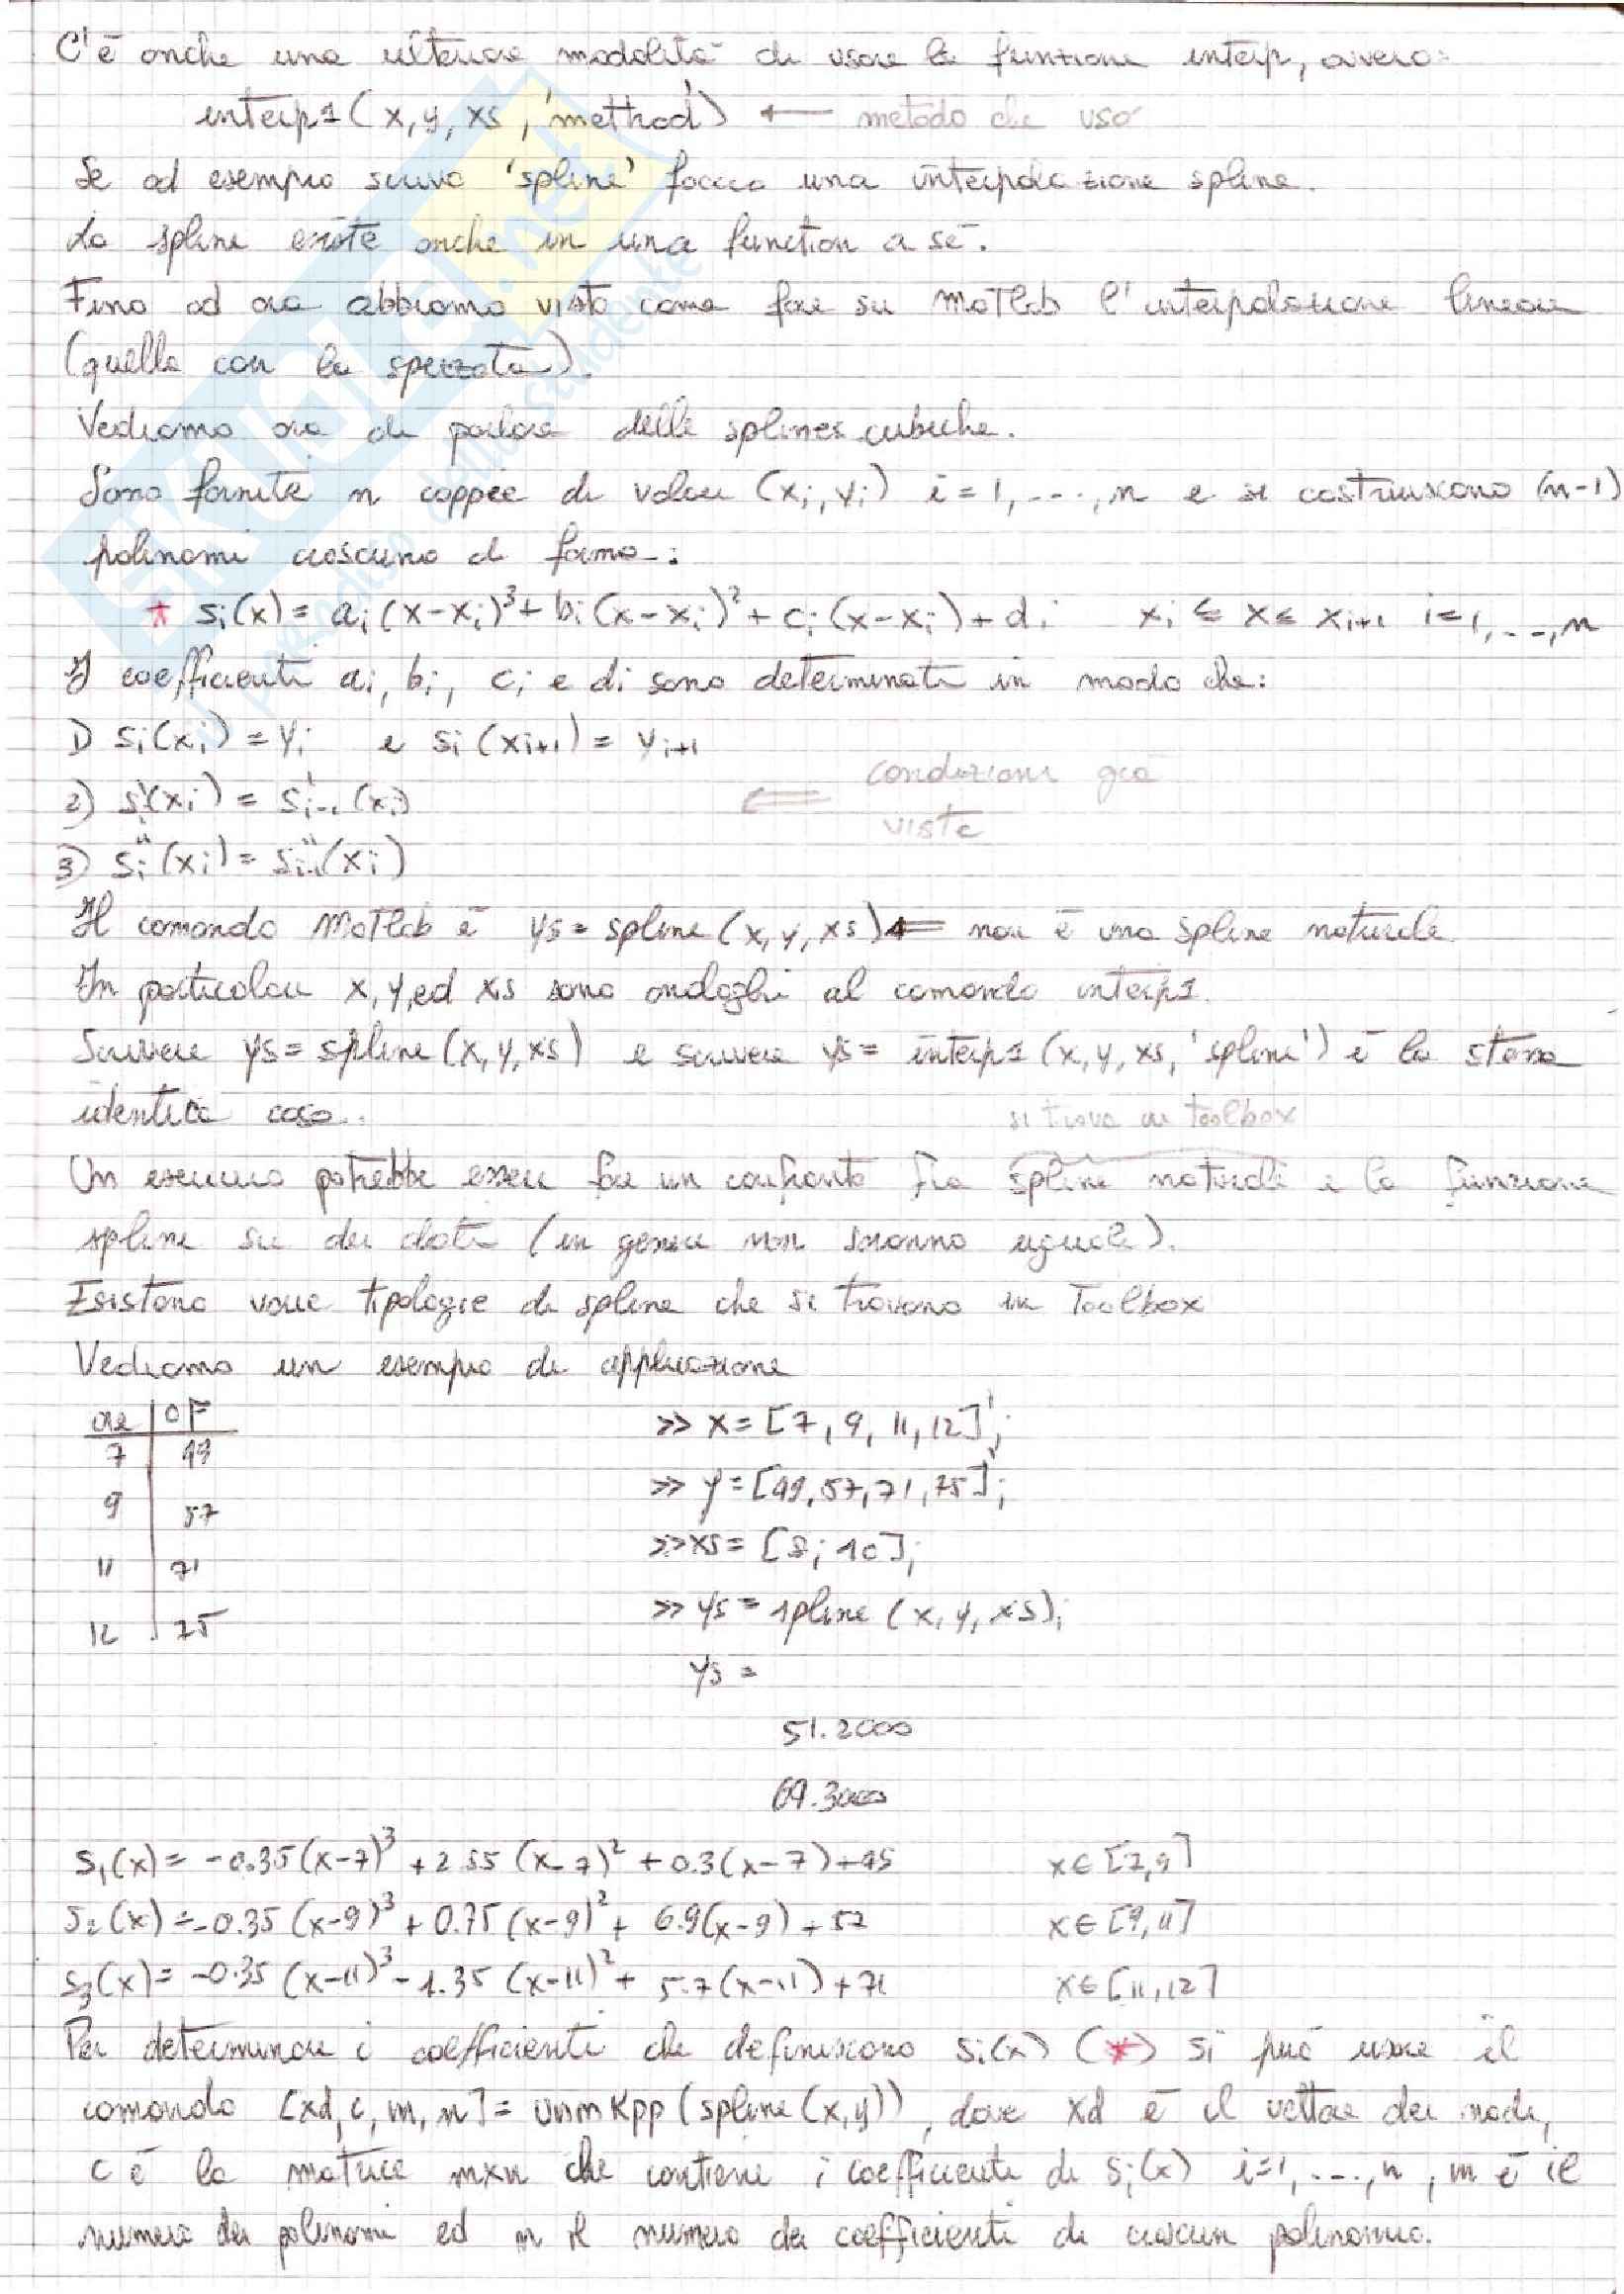 C'è anche una ulteriore modalità di usare la funzione interp, ovvero:
interp1(x,y,xs,'method') ← metodo che uso
Se ad esempio scrivo 'spline' faccio una interpolazione spline.
La spline existe anche in una function a sè.
Fino ad ora abbiamo visto come fare su MatLab l'interpolazione lineare
(quella con la spezzata).
Vediamo ora di parlare delle splines cubiche.
Sono fornite n coppie di valori (xi, yi) i=1,...,n e si costruiscono (n-1)
polinomi ciascuno di forma:
* si(x) = ai(x-xi)³ + bi(x-xi)² + ci(x-xi) + di xi ≤ x ≤ xi+1 i=1,...,n
I coefficienti ai, bi, ci e di sono determinati in modo che:
1) si(xi) = yi e si(xi+1) = yi+1
2) s'i(xi) = s'i-1(xi) ⇐ condizioni già
viste
3) s''i(xi) = s''i-1(xi)
Il comando MatLab è ys = spline(x,y,xs) ⇐ non è una spline naturale
In particolare x, y, ed xs sono analoghi al comando interp1.
Scrivere ys = spline(x,y,xs) e scrivere ys = interp1(x,y,xs,'spline') è la stessa
identica cosa.. si trova in Toolbox
Un esercizio potrebbe essere fare un confronto fra spline naturale e la funzione
spline su dei dati (in genere non saranno uguali).
Esistono varie tipologie di spline che si trovano in Toolbox
Vediamo un esempio di applicazione
ore | °F >> x = [7, 9, 11, 12]';
7 | 49
9 | 57 >> y = [49,57,71,75]';
11 | 71 >> xs = [8; 10];
12 | 75 >> ys = spline(x,y,xs);
ys =
51.2000
64.3000
s1(x) = -0.35(x-7)³ + 2.55(x-7)² + 0.3(x-7) + 49 x ∈ [7,9]
s2(x) = -0.35(x-9)³ + 0.75(x-9)² + 6.9(x-9) + 57 x ∈ [9,11]
s3(x) = -0.35(x-11)³ - 1.35(x-11)² + 5.7(x-11) + 71 x ∈ [11,12]
Per determinare i coefficienti che definiscono si(x) (*) si può usare il
comando [xd,c,m,n] = unmkpp(spline(x,y)), dove xd è il vettore dei nodi,
c è la matrice mxn che contiene i coefficienti di si(x) i=1,...,n, m è il
numero dei polinomi ed n il numero dei coefficienti di ciascun polinomio.